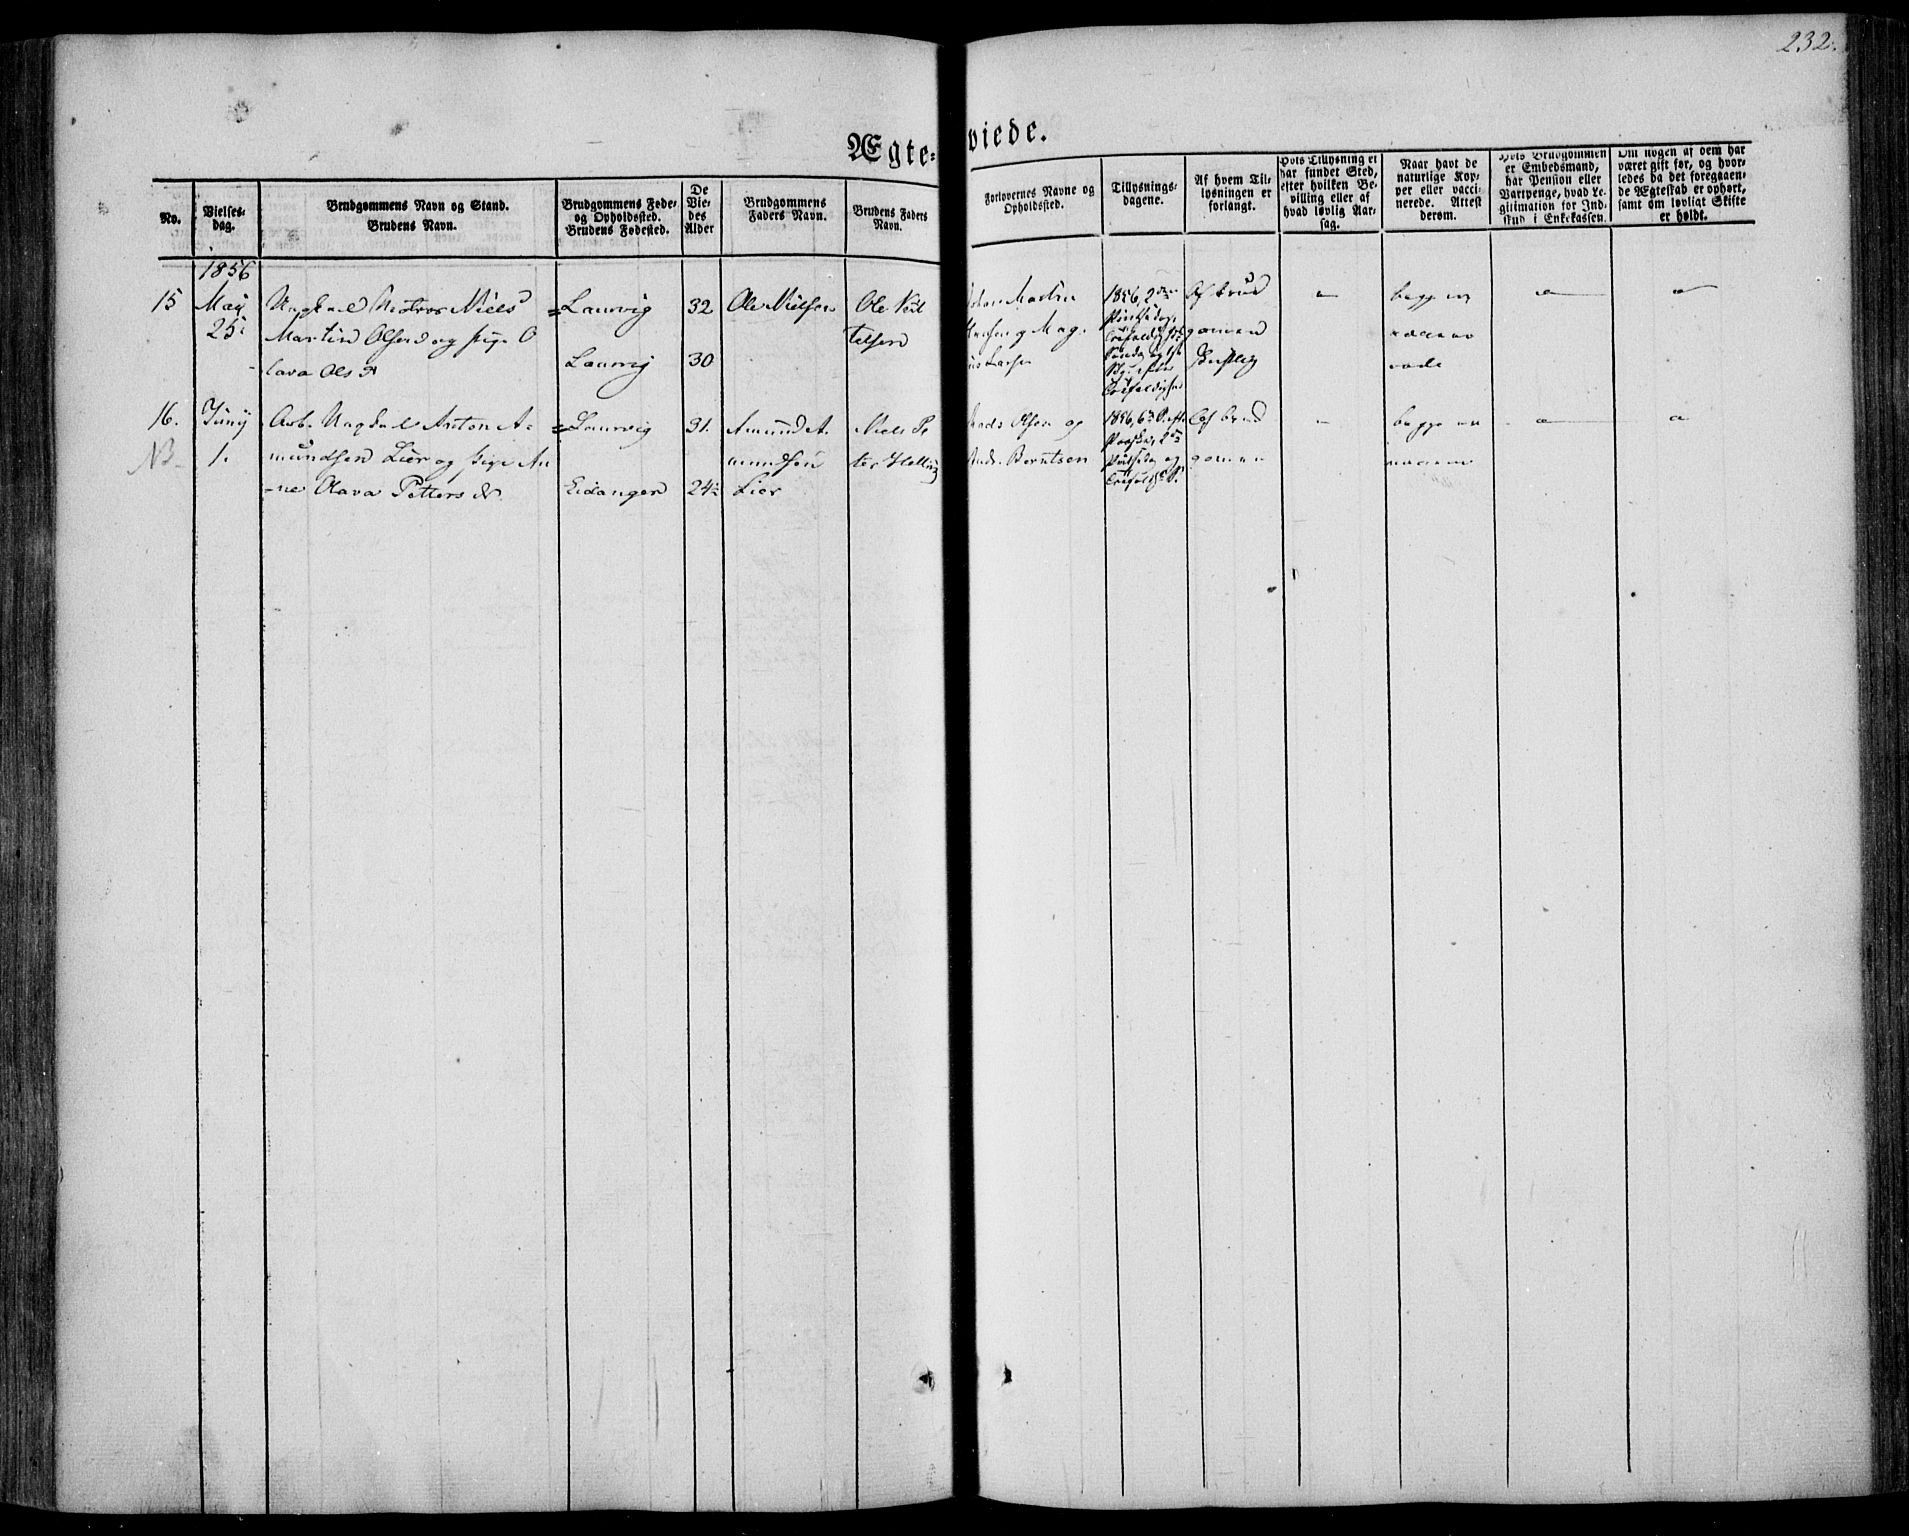 232.
Ægte-viede.
No.
Vielses-
dag.
Brudgommens Navn og Stand.
Brudens Navn.
Brudgommens Føde-
og Opholdssted.
Brudens Fødested.
De
Vie-
des
Alder
Brudgommens
Faders Navn.
Brudens Faders
Navn.
Forlovernes Navne og
Opholdssted.
Tillysnings-
dagene.
Af hvem Til-
lysningen er
forlangt.
Hvis Tillysning ei
har fundet Sted,
efter hvilken Be-
villing eller af
hvad lovlig Aar-
sag.
Naar havt de
naturlige Kop-
per eller vacci-
nerede. Attest
derom.
Hvis Brudgommen
er Embedsmand,
har Pension eller
Vartpenge, hvad Le-
gitimation for Ind-
skud i Enkekassen.
Om nogen af dem har
været gift før, og hvor-
ledes da det foregaaen-
de Ægteskab er ophørt,
samt om lovligt Skifte
er holdt.
1856
15
May
25
Ungkarl Matros Niels
Martin Olsen og Pige O
lava Ols D
Laurvig
Laurvig
32
30
Ole Nielsen
Ole
telsen
Johan Martin
Hansen og Mag-
nus Larsen
1856, 2den
Pintsedag,
Søndag og
Trefoldighed
Af Brud
gommen
begge
16.
NB
Juny
1.
Arb. Ungkarl Anton A-
mundsen Lier og Pige An
ne Olava Petters dr
Laurvig
Eidanger
31.
24½
Amund A.
mundsen
Lier
Niels Pe
ter
Mads Olsen og
Ands Berntsen
1856, 6te S. eft.
Paaske, 2den
Pintsedag og
Trefoldigh. S.
Af Brud
gommen
begge